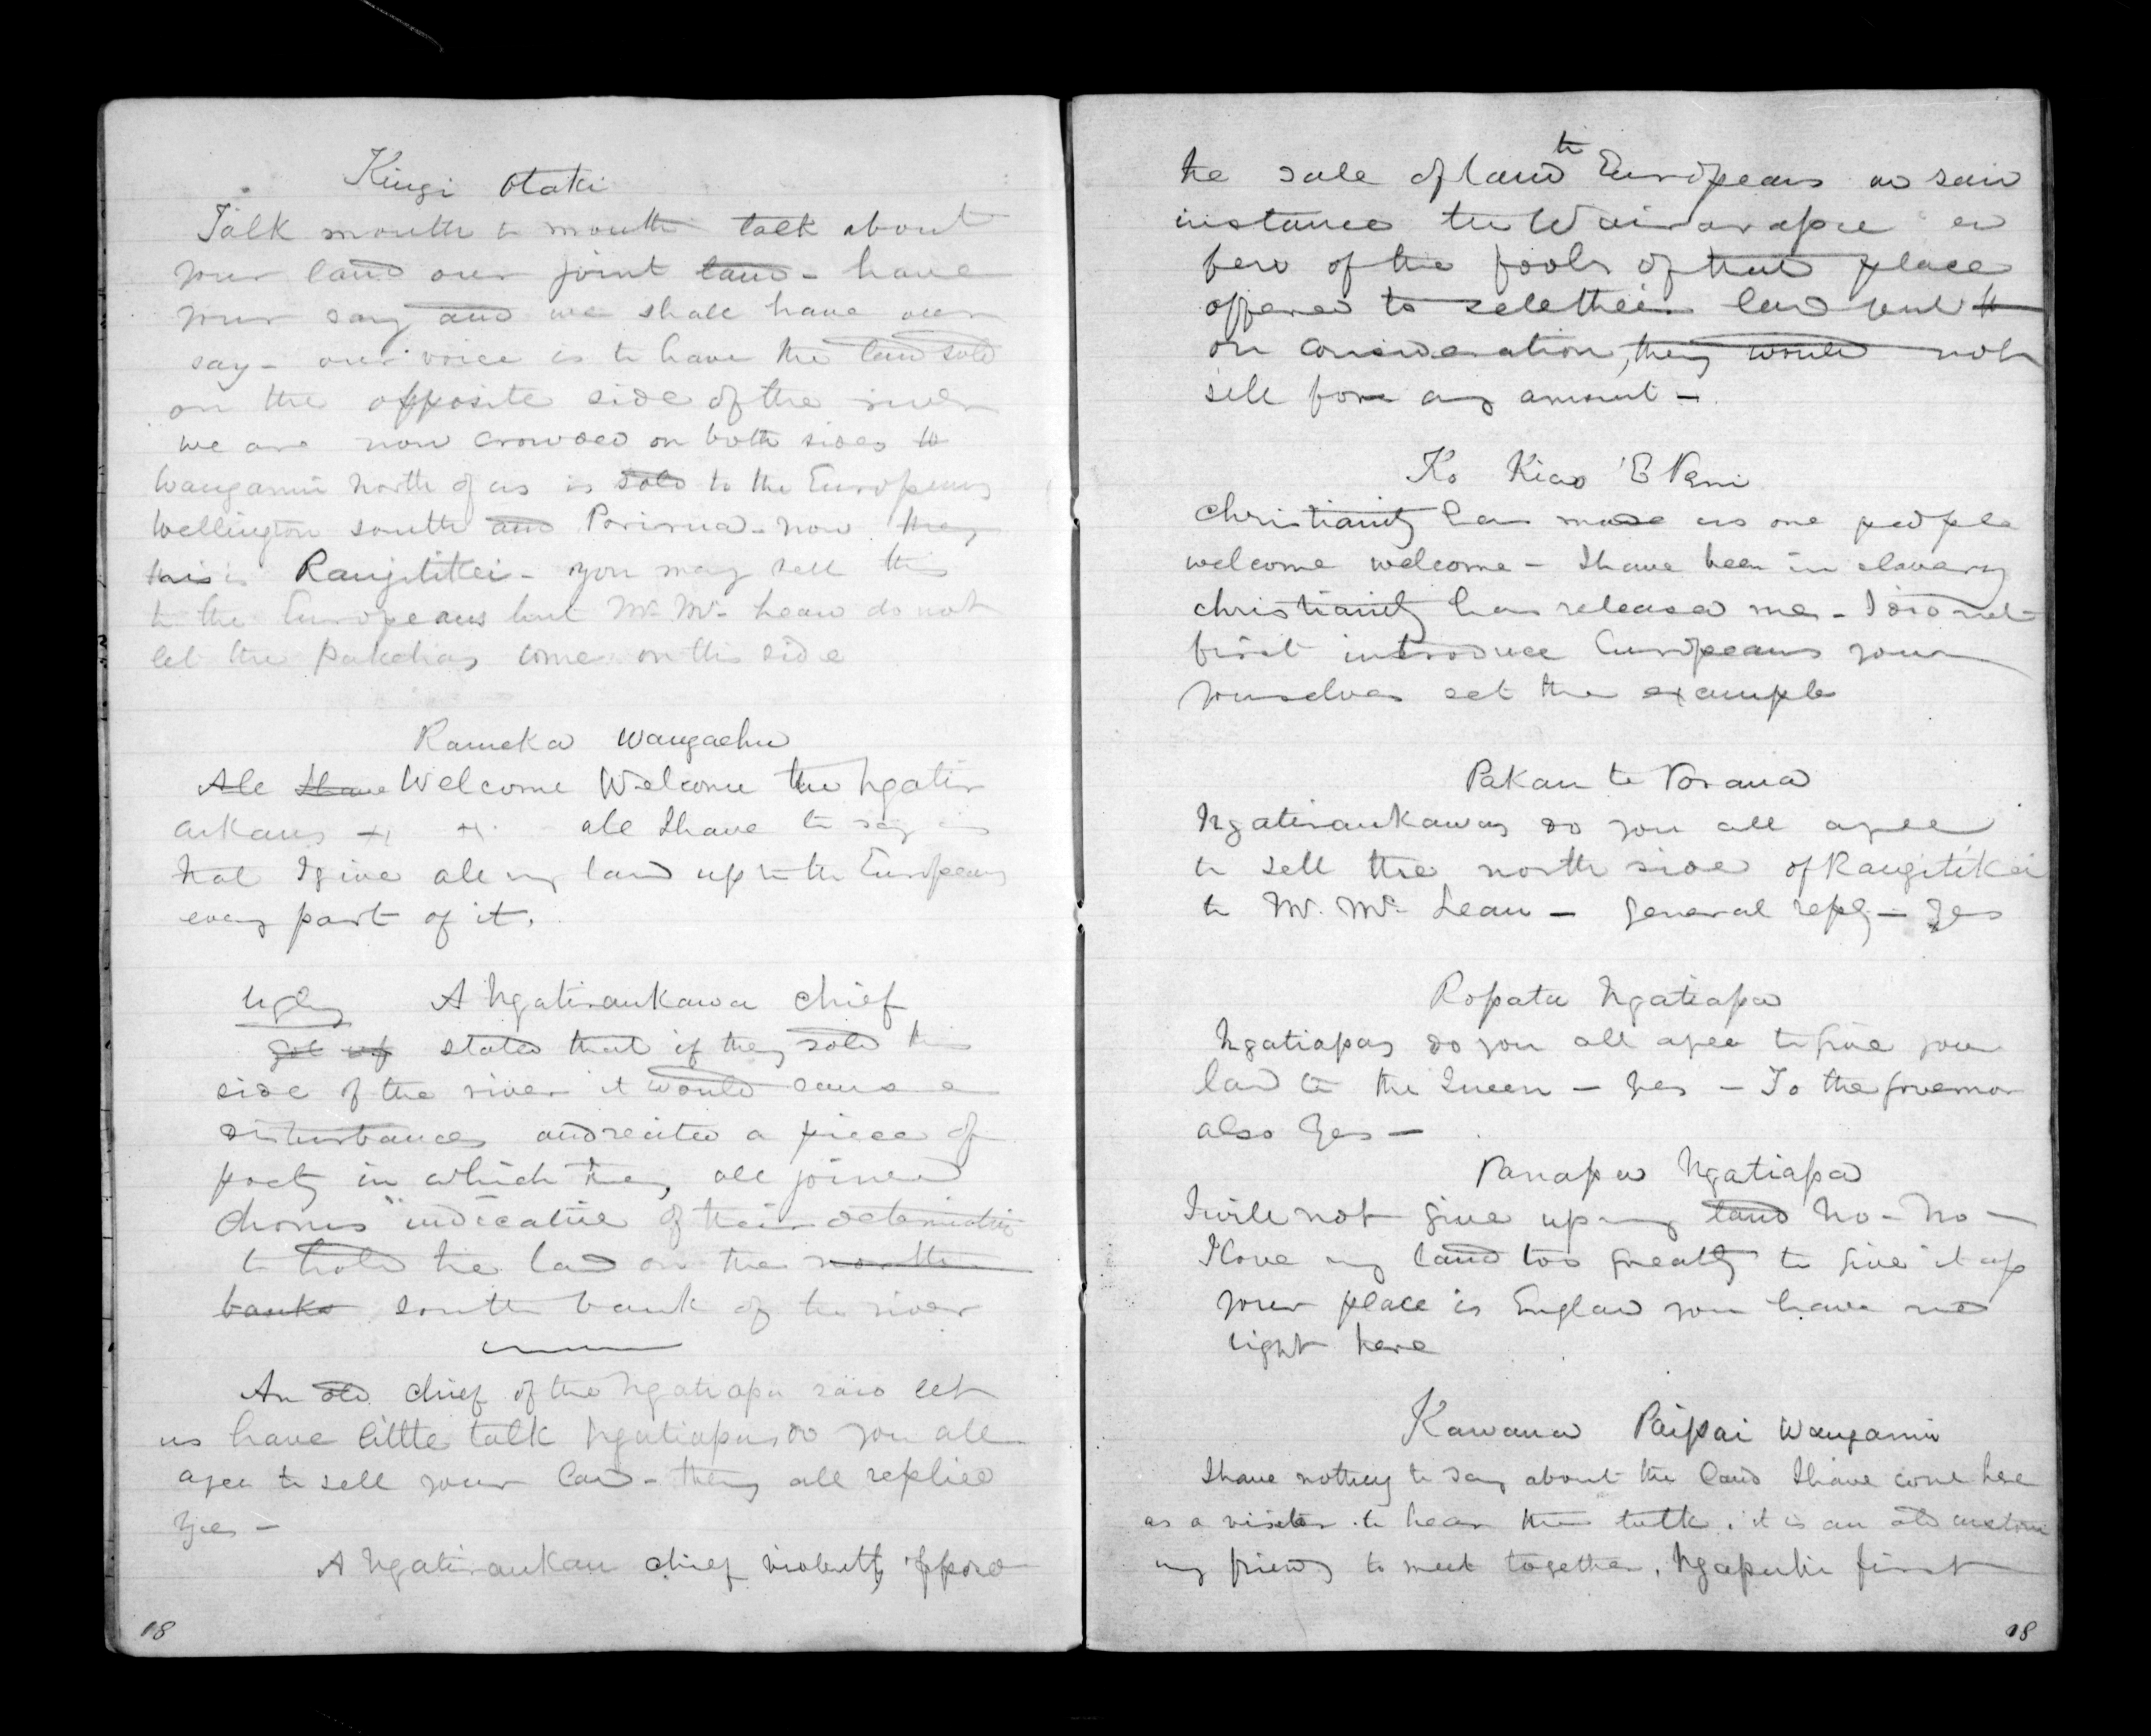 Kingi Otaki
Talk mouth to mouth talk about
your land our joint land - have
your say and we shall have our
say - our voice is to have the land sold
on the opposite side of the river
we are now crowded on both sides
Wanganui North of us is sold to the Europeans
Wellington south and Porirua - now they
this is Rangitikei - you may sell this
to the Europeans but Mr. Mc. Lean do not
let the pakehas come on this side
Rameka Wangaehu
All I have Welcome Welcome the Ngatir
aukaus all I have to say is
that I give all my land up to the Europeans
every part of it.
Ugly A Ngatiraukawa chief
got up stated that if they sold this
side of the river it would cause a
disturbances and recited a piece of
poety in which they all joined
chorus indicative of their determination
to hold the land on the northern
banks south bank of the river
An old chief of the Ngatiapa said let
us have little talk Ngatiapas do you all
agree to sell your land - they all replied
Yes -
A Ngatiraukau chief violently opposed
18
the sale of land to Europeans as said
instance the Wairarapa a
few of the fools of that place
offered to sell their land but
on consideration, they would not
sell for any amount -
Ko Kiao E
Christianity has made us one people
welcome welcome - I have been in slavery
christianity has released me - I did not
first introduce Europeans your
yourselves set the example
Pakau te
Ngatiraukawas do you all agree
to sell the north side of Rangitikei
to Mr. Mc. Lean - general reply - Yes
Ropata Ngatiapa
Ngatiapas do you all agree to give your
land to the Queen - yes - To the governor
also Yes -
Panapa Ngatiapa
I will not give up my land No - No -
I love my land too greatly to give it up
your place is England you have no
right here
Kawana Paipai Wanganui
I have nothing to say about the land I have come here
as a visitor to hear the talk. it is an old custom
my friends to meet together. Ngapuhi first
18